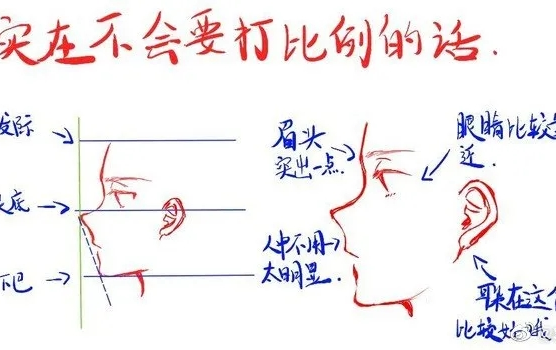 实在不会要打比例的话.
发际
眉头
突出一点.
眼睛比较
近.
底
人中不用
太明显.
下巴
耳朵在这个
比较好哦